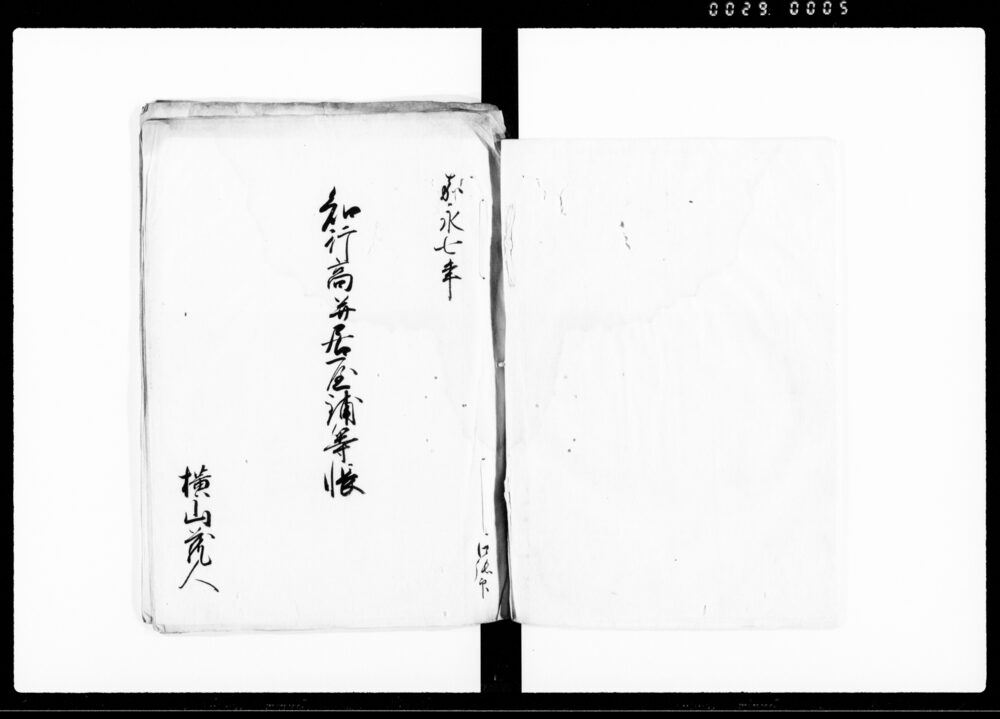 0029 0005
嘉永七年
知行高并居屋補等帳
横山蔵人